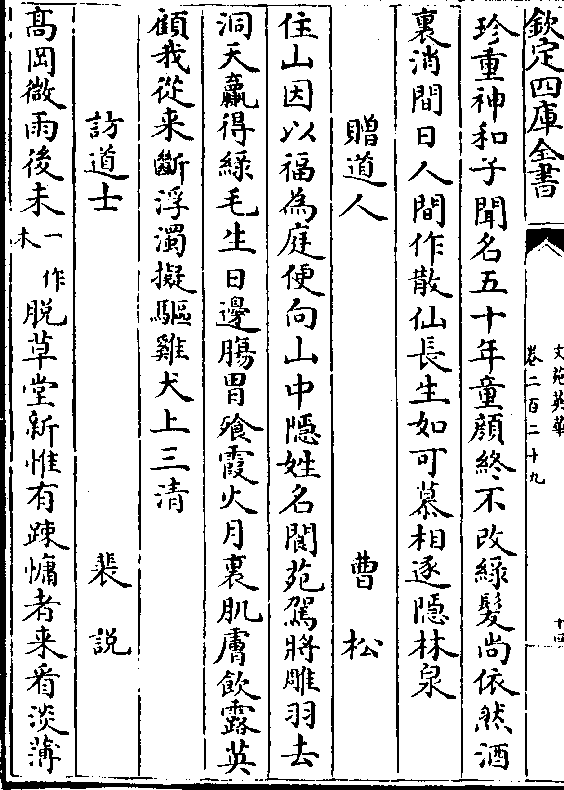 欽定四庫全書
文苑英華
卷二百二十九
十四
珍重神和子聞名五十年童顔終不改緑髮尚依然酒
裏消閒日人間作散仙長生如可慕相逐隱林泉
贈道人 曹松
住山因以福為庭便向山中隱姓名閬苑駕將雕羽去
洞天贏得緑毛生日邊腸胃飱霞火月裏肌膚飲露英
顧我從来斷浮濁擬驅雞犬上三清
訪道士 裴説
髙岡微雨後未一作木脱草堂新惟有踈慵者来看淡薄